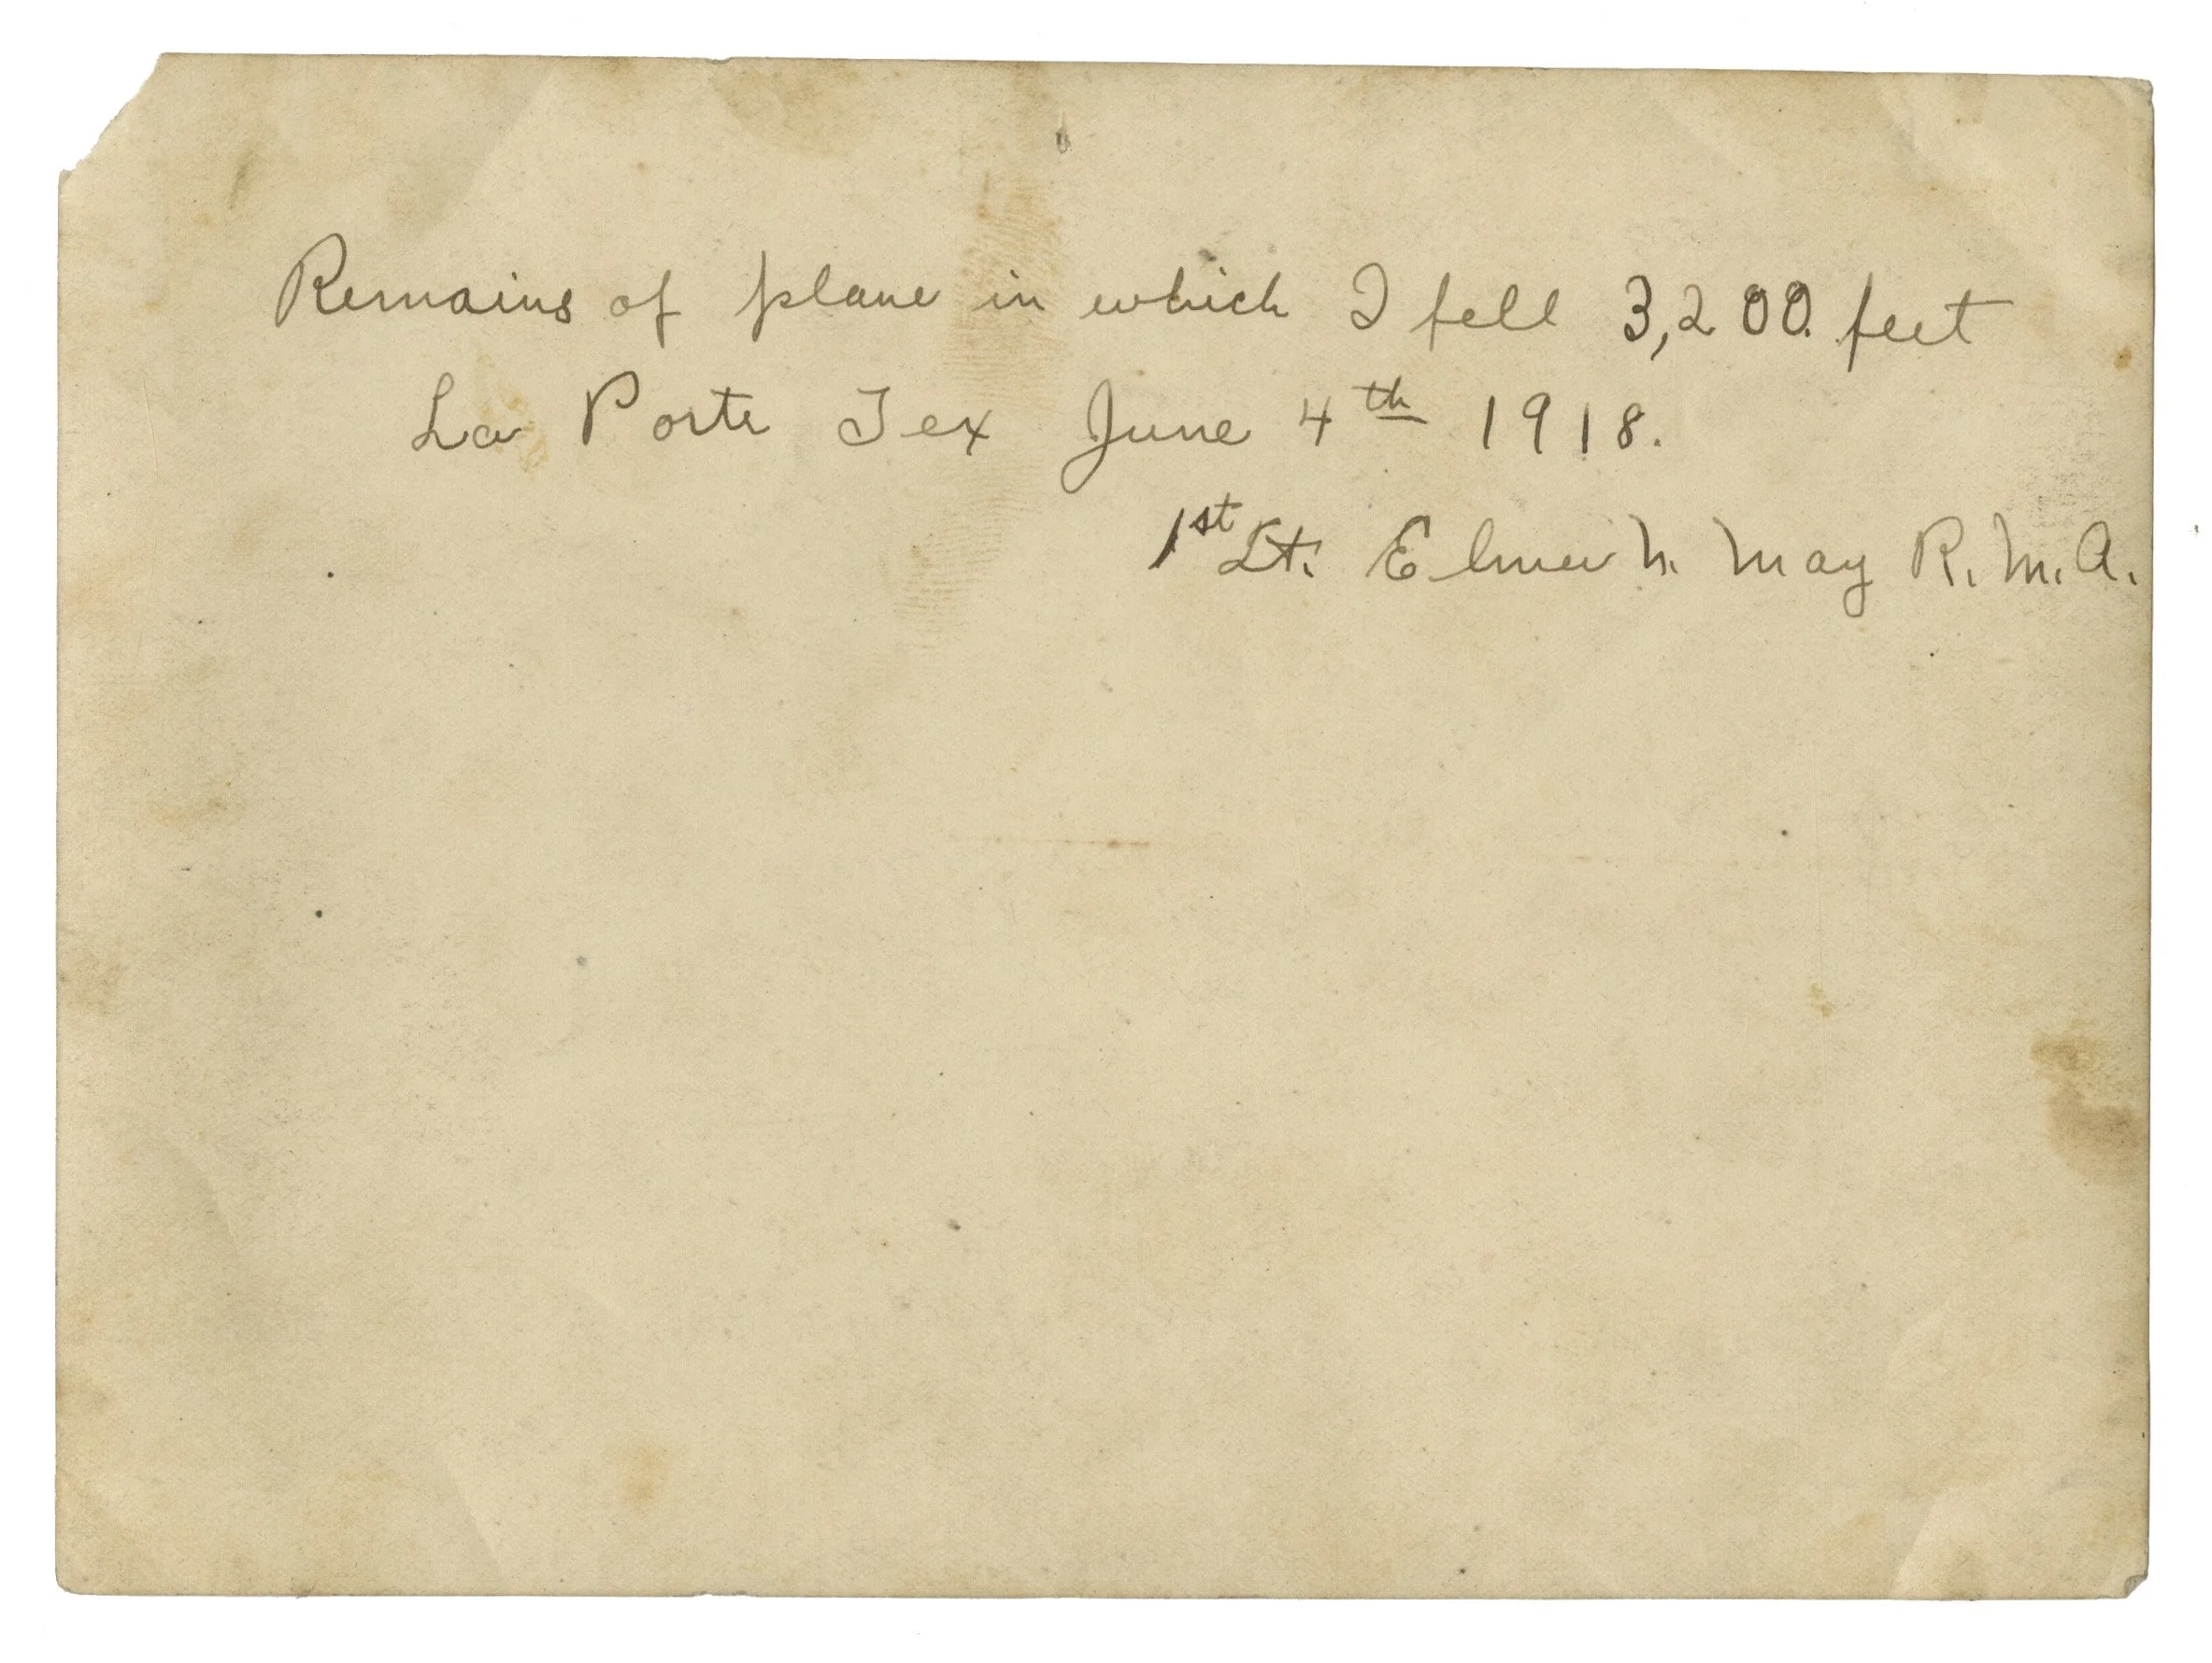 Remains of plane in which I fell 3,200 feet
La Porte Tex June 4th 1918.
1st Lt. Elmer N. May R.M.A.